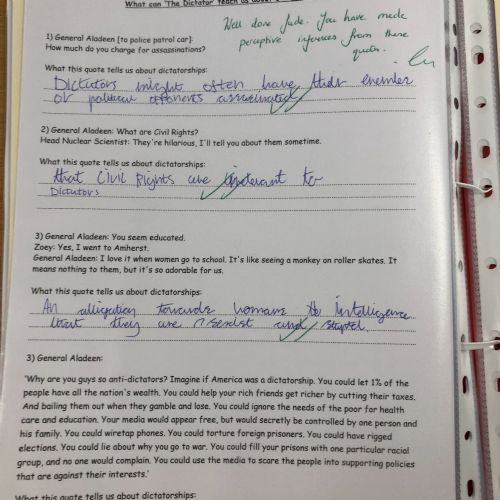 What can 'The Dictator' teach us about
Well done Jude. You have made
perceptive inferences from these
quotes.
1) General Aladeen [to police patrol car]:
How much do you charge for assassinations?
What this quote tells us about dictatorships:
Dictators might often have their enemies
or political opponents assasinated
2) General Aladeen: What are Civil Rights?
Head Nuclear Scientist: They're hilarious, I'll tell you about them sometime.
What this quote tells us about dictatorships:
that Civil Rights are to
Dictators
3) General Aladeen: You seem educated.
Zoey: Yes, I went to Amherst.
General Aladeen: I love it when women go to school. It's like seeing a monkey on roller skates. It
means nothing to them, but it's so adorable for us.
What this quote tells us about dictatorships:
An towards intelligence
that they are and stupid.
3) General Aladeen:
'Why are you guys so anti-dictators? Imagine if America was a dictatorship. You could let 1% of the
people have all the nation's wealth. You could help your rich friends get richer by cutting their taxes.
And bailing them out when they gamble and lose. You could ignore the needs of the poor for health
care and education. Your media would appear free, but would secretly be controlled by one person and
his family. You could wiretap phones. You could torture foreign prisoners. You could have rigged
elections. You could lie about why you go to war. You could fill your prisons with one particular racial
group, and no one would complain. You could use the media to scare the people into supporting policies
that are against their interests.'
What this quote tells us about dictatorships: